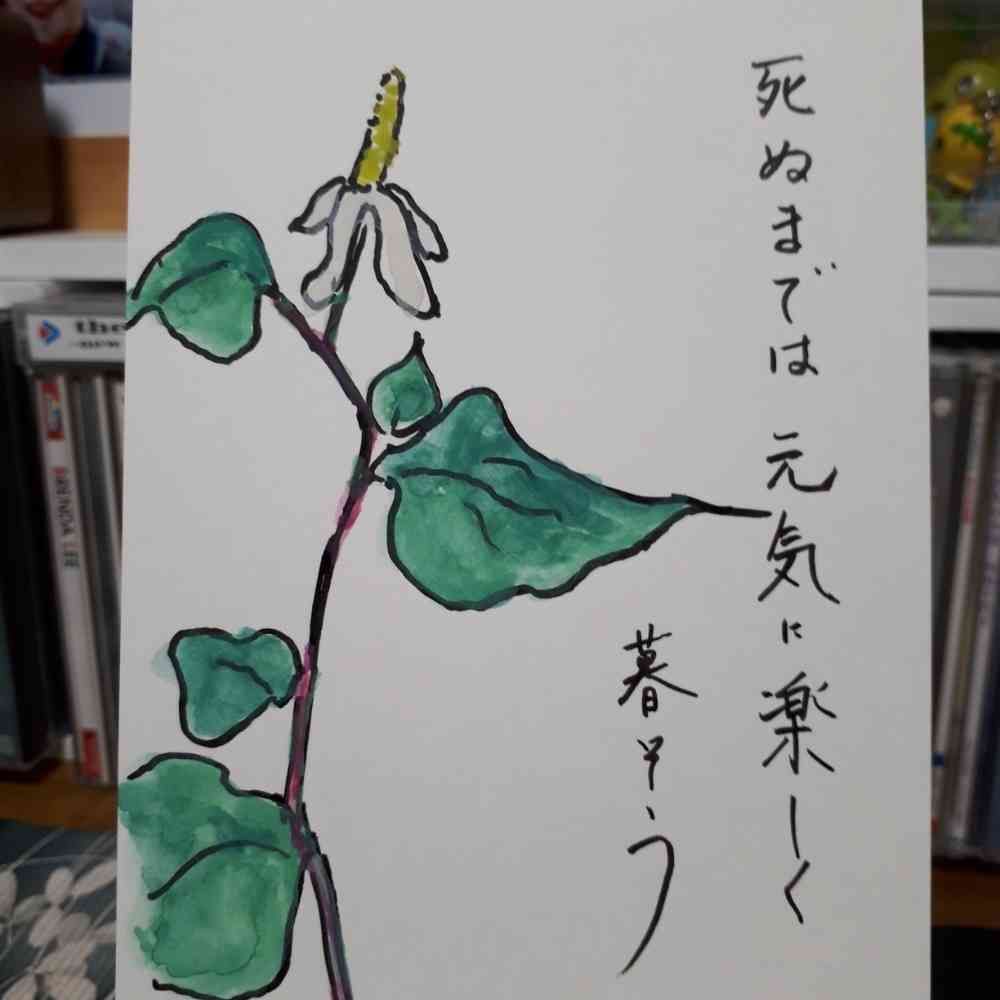 死ぬまでは 元気に楽しく
暮そう
the
BRENDA LEE